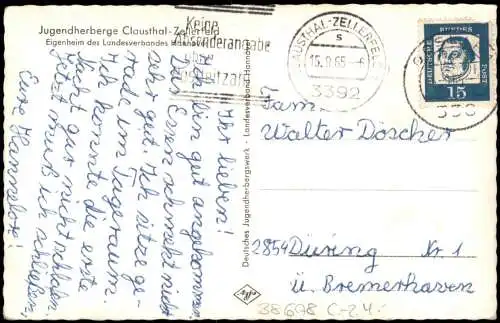 Jugendherberge Clausthal-Zellerfeld
Eigenheim des Landesverbandes Hannover
Keine
über
CLAUSTHAL-ZELLERFELD
s
15.9.65
3392
DEUTSCHE BUNDESPOST
15
Ihr lieben!
Hier bin gut angekommen.
Das Essen schmekt nicht
sehr gut. Ich sitze ge-
rade im Tagesraum.
Ich konnte die erste
Nacht gar nicht schlafen.
Jetzt muß ich schließen.
Eure Hannelore!
Deutsches Jugendherbergswerk · Landesverband Hannover
Fam.
Walter Döscher
2854 Düring Nr 1
ü. Bremerhaven
38698 C-Z 4.-